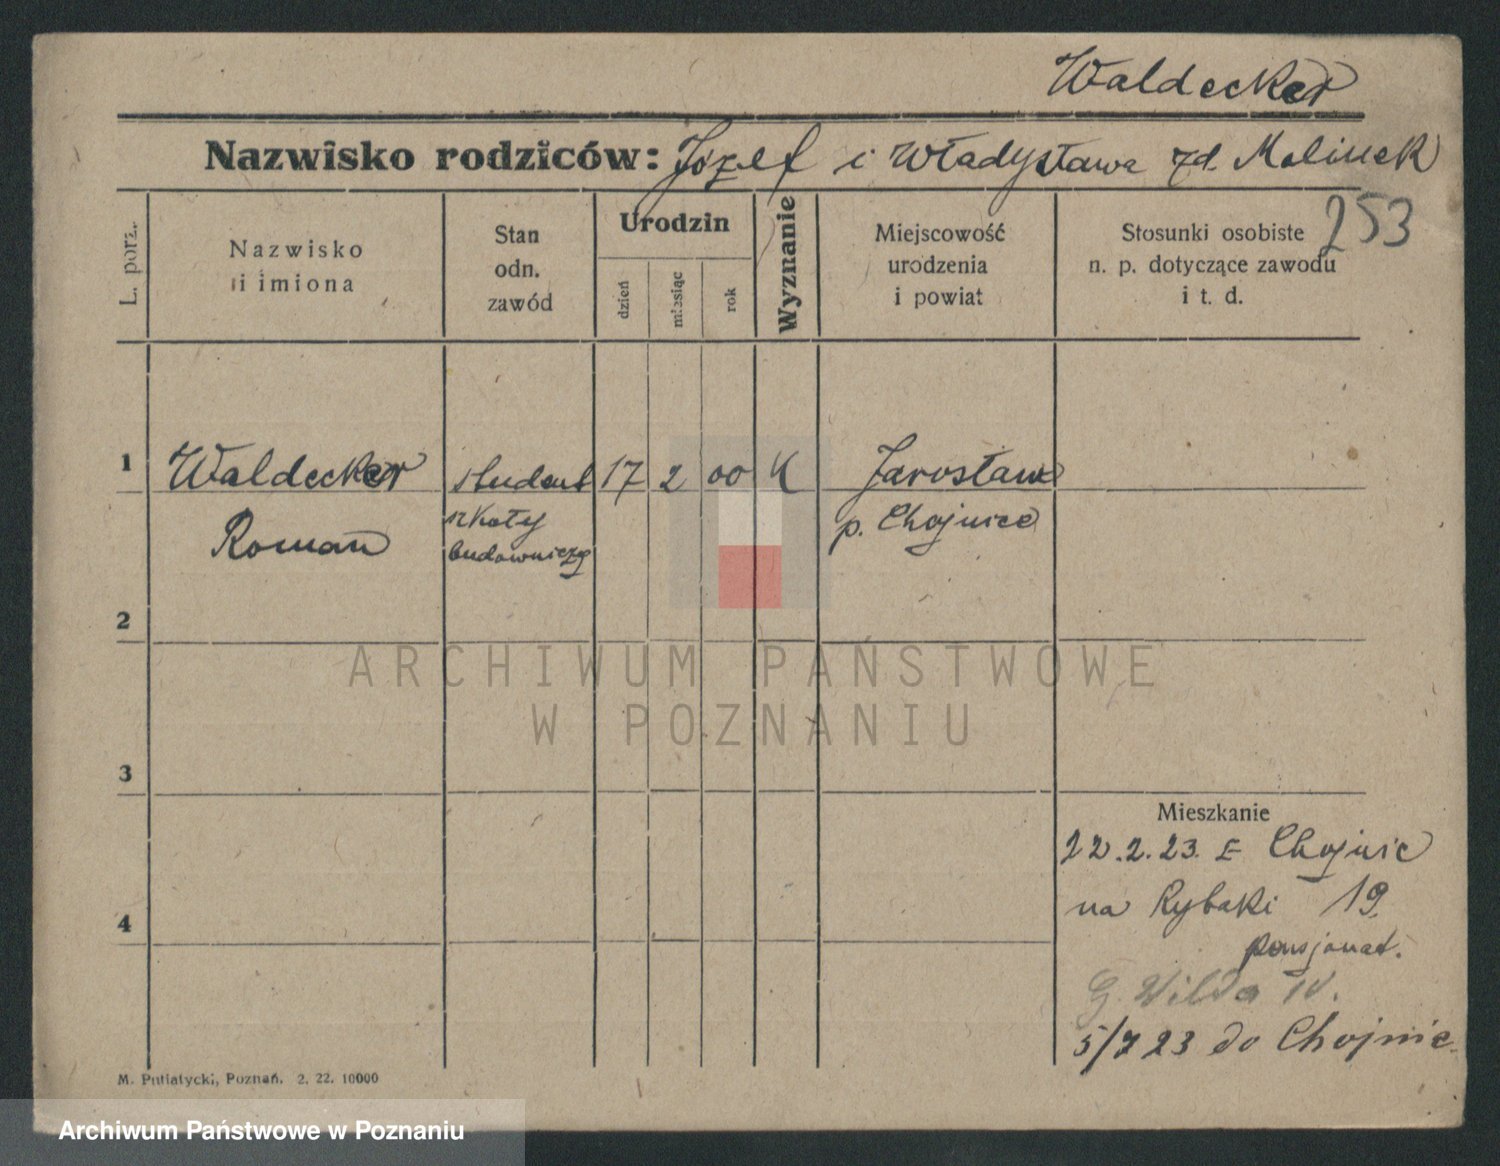 Waldecker
Nazwisko rodziców: Józef i Władysława zd. Malinek
253
L. porz.
Nazwisko
i imiona
Stan
odn.
zawód
Urodzin
dzień
miesiąc
rok
Wyznanie
Miejscowość
urodzenia
i powiat
Stosunki osobiste
n. p. dotyczące zawodu
i t. d.
1
Waldecker
Roman
student
szkoły
budowniczej
17
2
00
K
Jarosław
p. Chojnice
2
3
4
Mieszkanie
12.2.23. z Chojnic
na Rybaki 19.
pensjonat.
G. Wilda
5/7 23 do Chojnic
M. Putiatycki, Poznań. 2. 22. 10000
ARCHIWUM PAŃSTWOWE
W POZNANIU
Archiwum Państwowe w Poznaniu